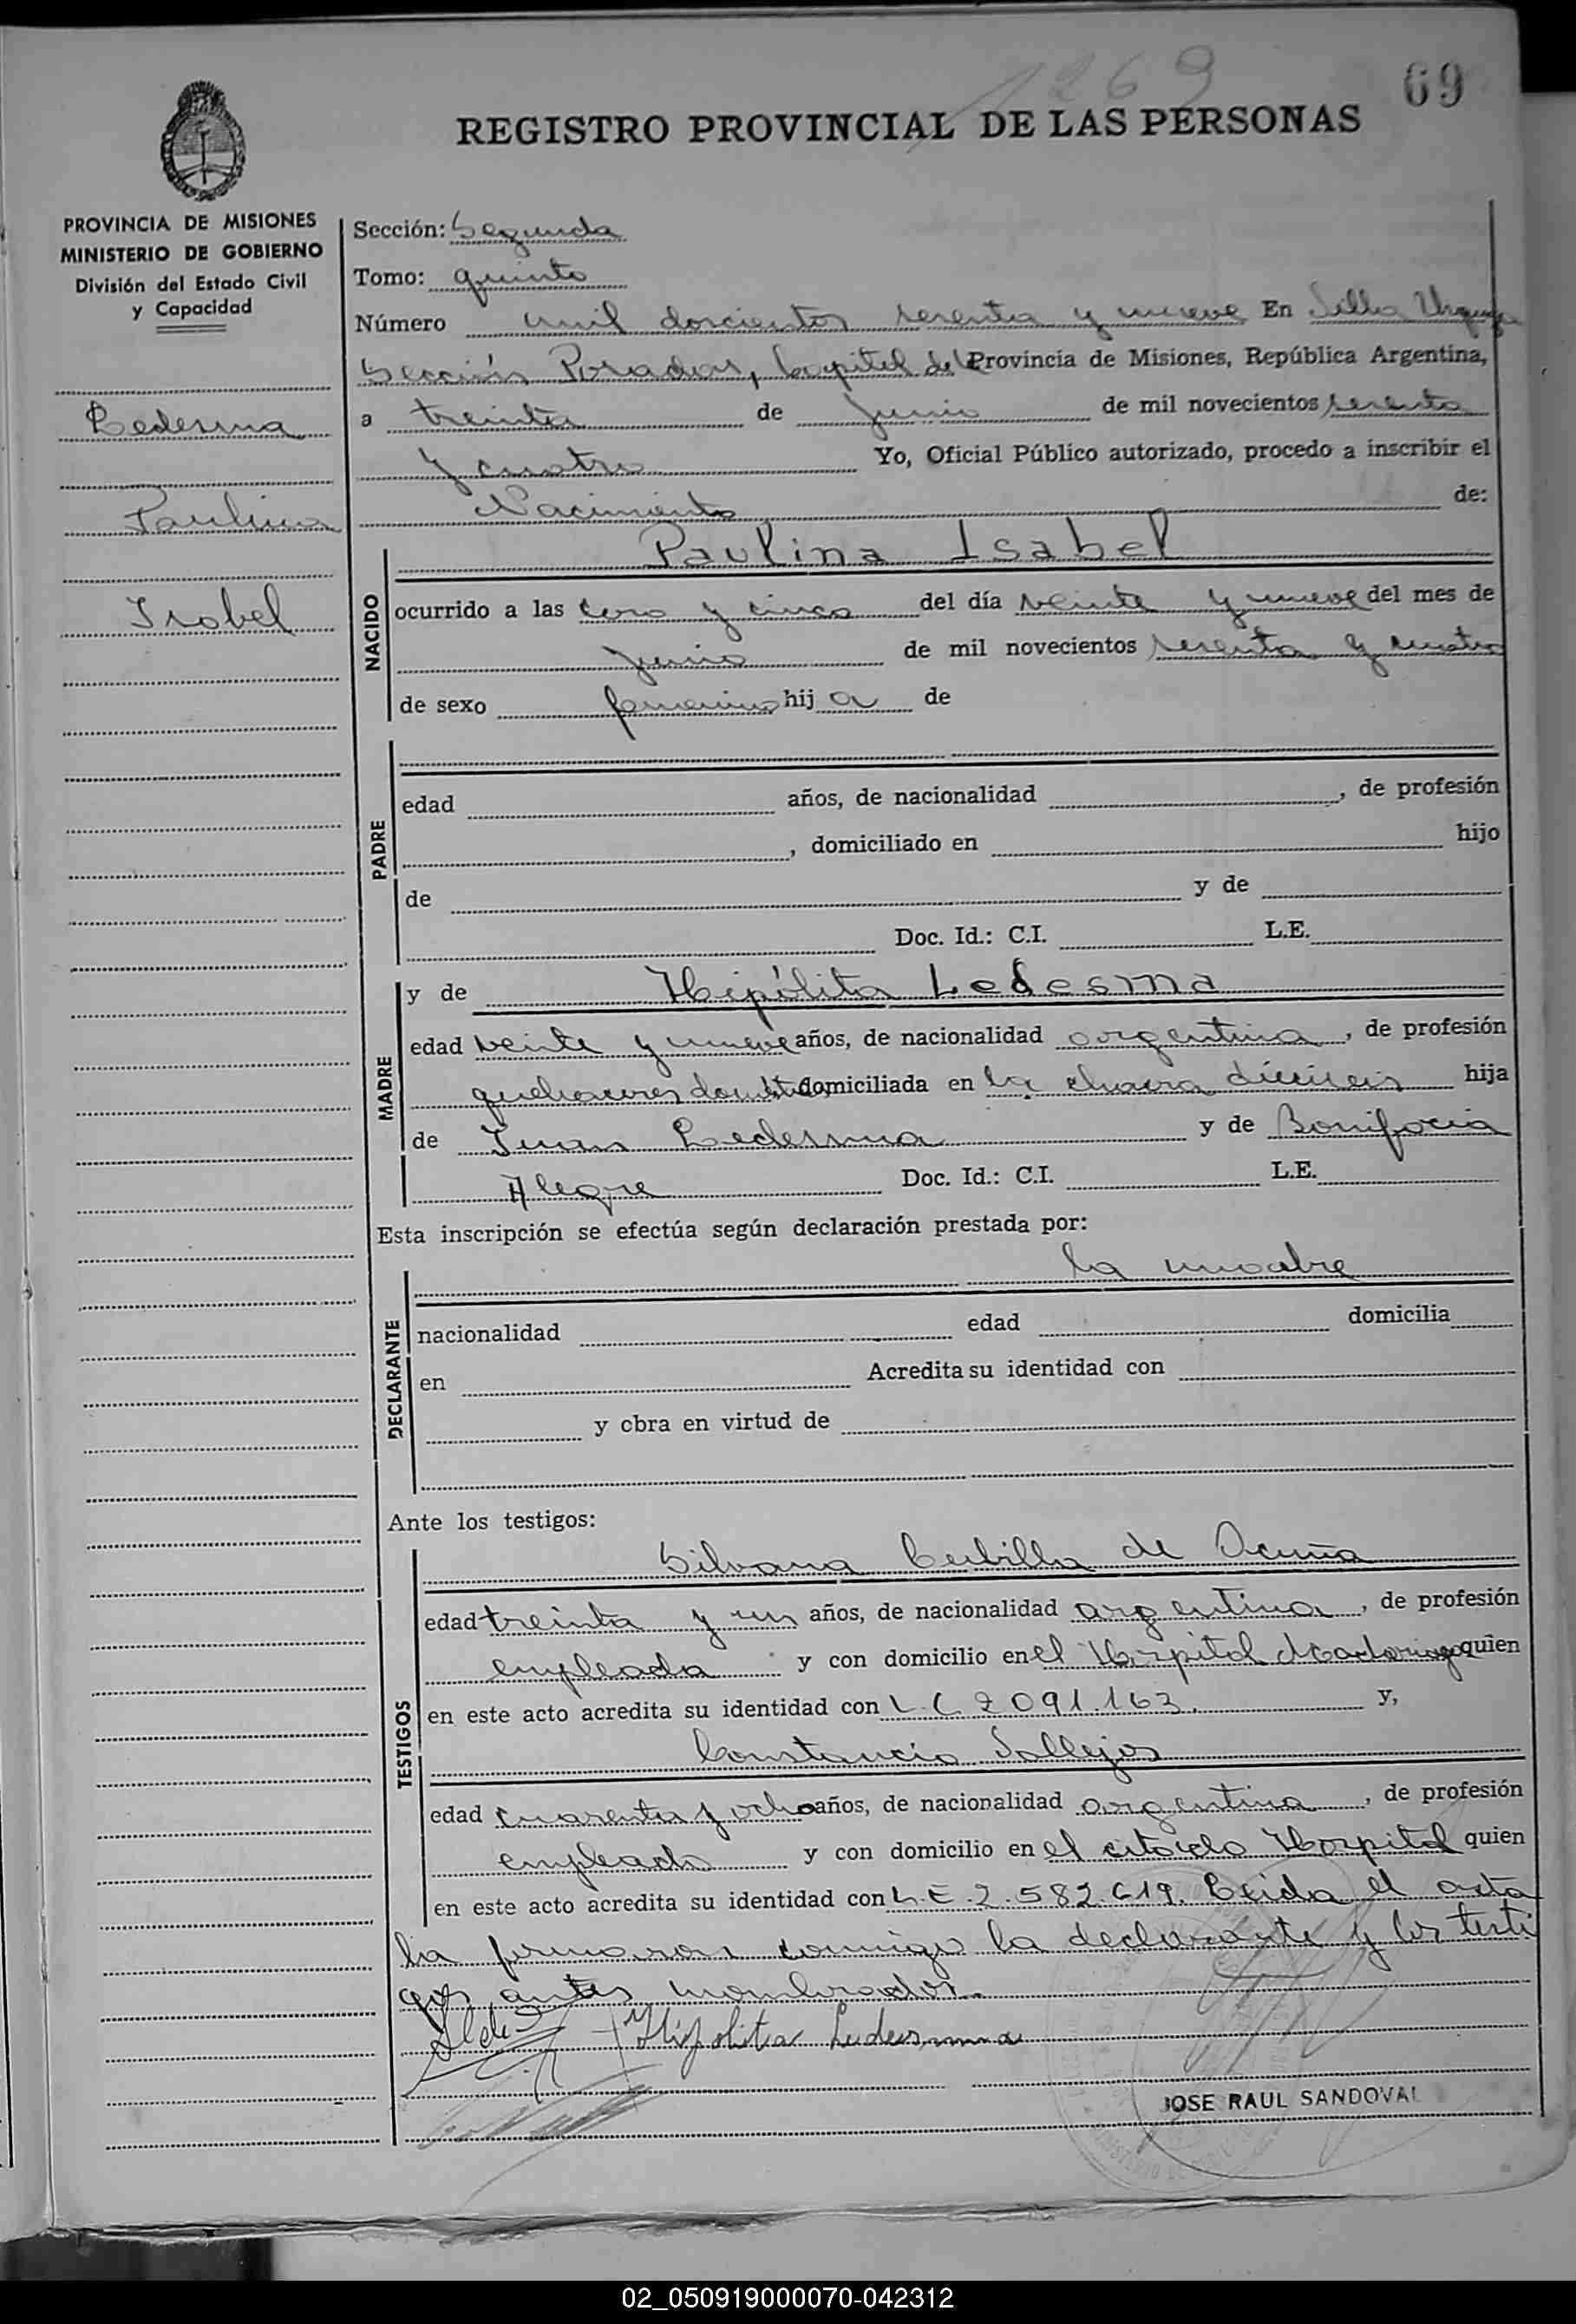 1269
69
REGISTRO PROVINCIAL DE LAS PERSONAS
PROVINCIA DE MISIONES
MINISTERIO DE GOBIERNO
División del Estado Civil
y Capacidad
Ledesma
Paulina
Isabel
Sección: Segunda
Tomo: quinto
Número mil doscientos sesenta y nueve En Villa Urquiza
Sección Posadas, Capital de la Provincia de Misiones, República Argentina,
a treinta de Junio de mil novecientos sesenta
y cuatro Yo, Oficial Público autorizado, procedo a inscribir el
Nacimiento de:
NACIDO
Paulina Isabel
ocurrido a las cero y cinco del día veinte y nueve del mes de
junio de mil novecientos sesenta y cuatro
de sexo femenino hij a de
PADRE
edad años, de nacionalidad , de profesión
, domiciliado en hijo
de y de
Doc. Id.: C.I. L.E.
MADRE
y de Hipólita Ledesma
edad veinte y nueve años, de nacionalidad argentina , de profesión
quehaceres domésticos domiciliada en la chacra dieciseis hija
de Juan Ledesma y de Bonifacia
Alegre Doc. Id.: C.I. L.E.
Esta inscripción se efectúa según declaración prestada por:
DECLARANTE
la madre
nacionalidad edad domicilia
en Acredita su identidad con
y obra en virtud de
Ante los testigos:
TESTIGOS
Silvana Cubilla de Acuña
edad treinta y un años, de nacionalidad argentina , de profesión
empleada y con domicilio en el Hospital Madariaga quien
en este acto acredita su identidad con L.C. 2091.163. y,
Constancio Vallejos
edad cuarenta y ocho años, de nacionalidad argentina , de profesión
empleado y con domicilio en el citado Hospital quien
en este acto acredita su identidad con L.E. 2.582.619. Leida el acta
la firmaron conmigo la declarante y los testi
gos antes nombrados.
Hipolita Ledesma
JOSE RAUL SANDOVAL
02_050919000070-042312